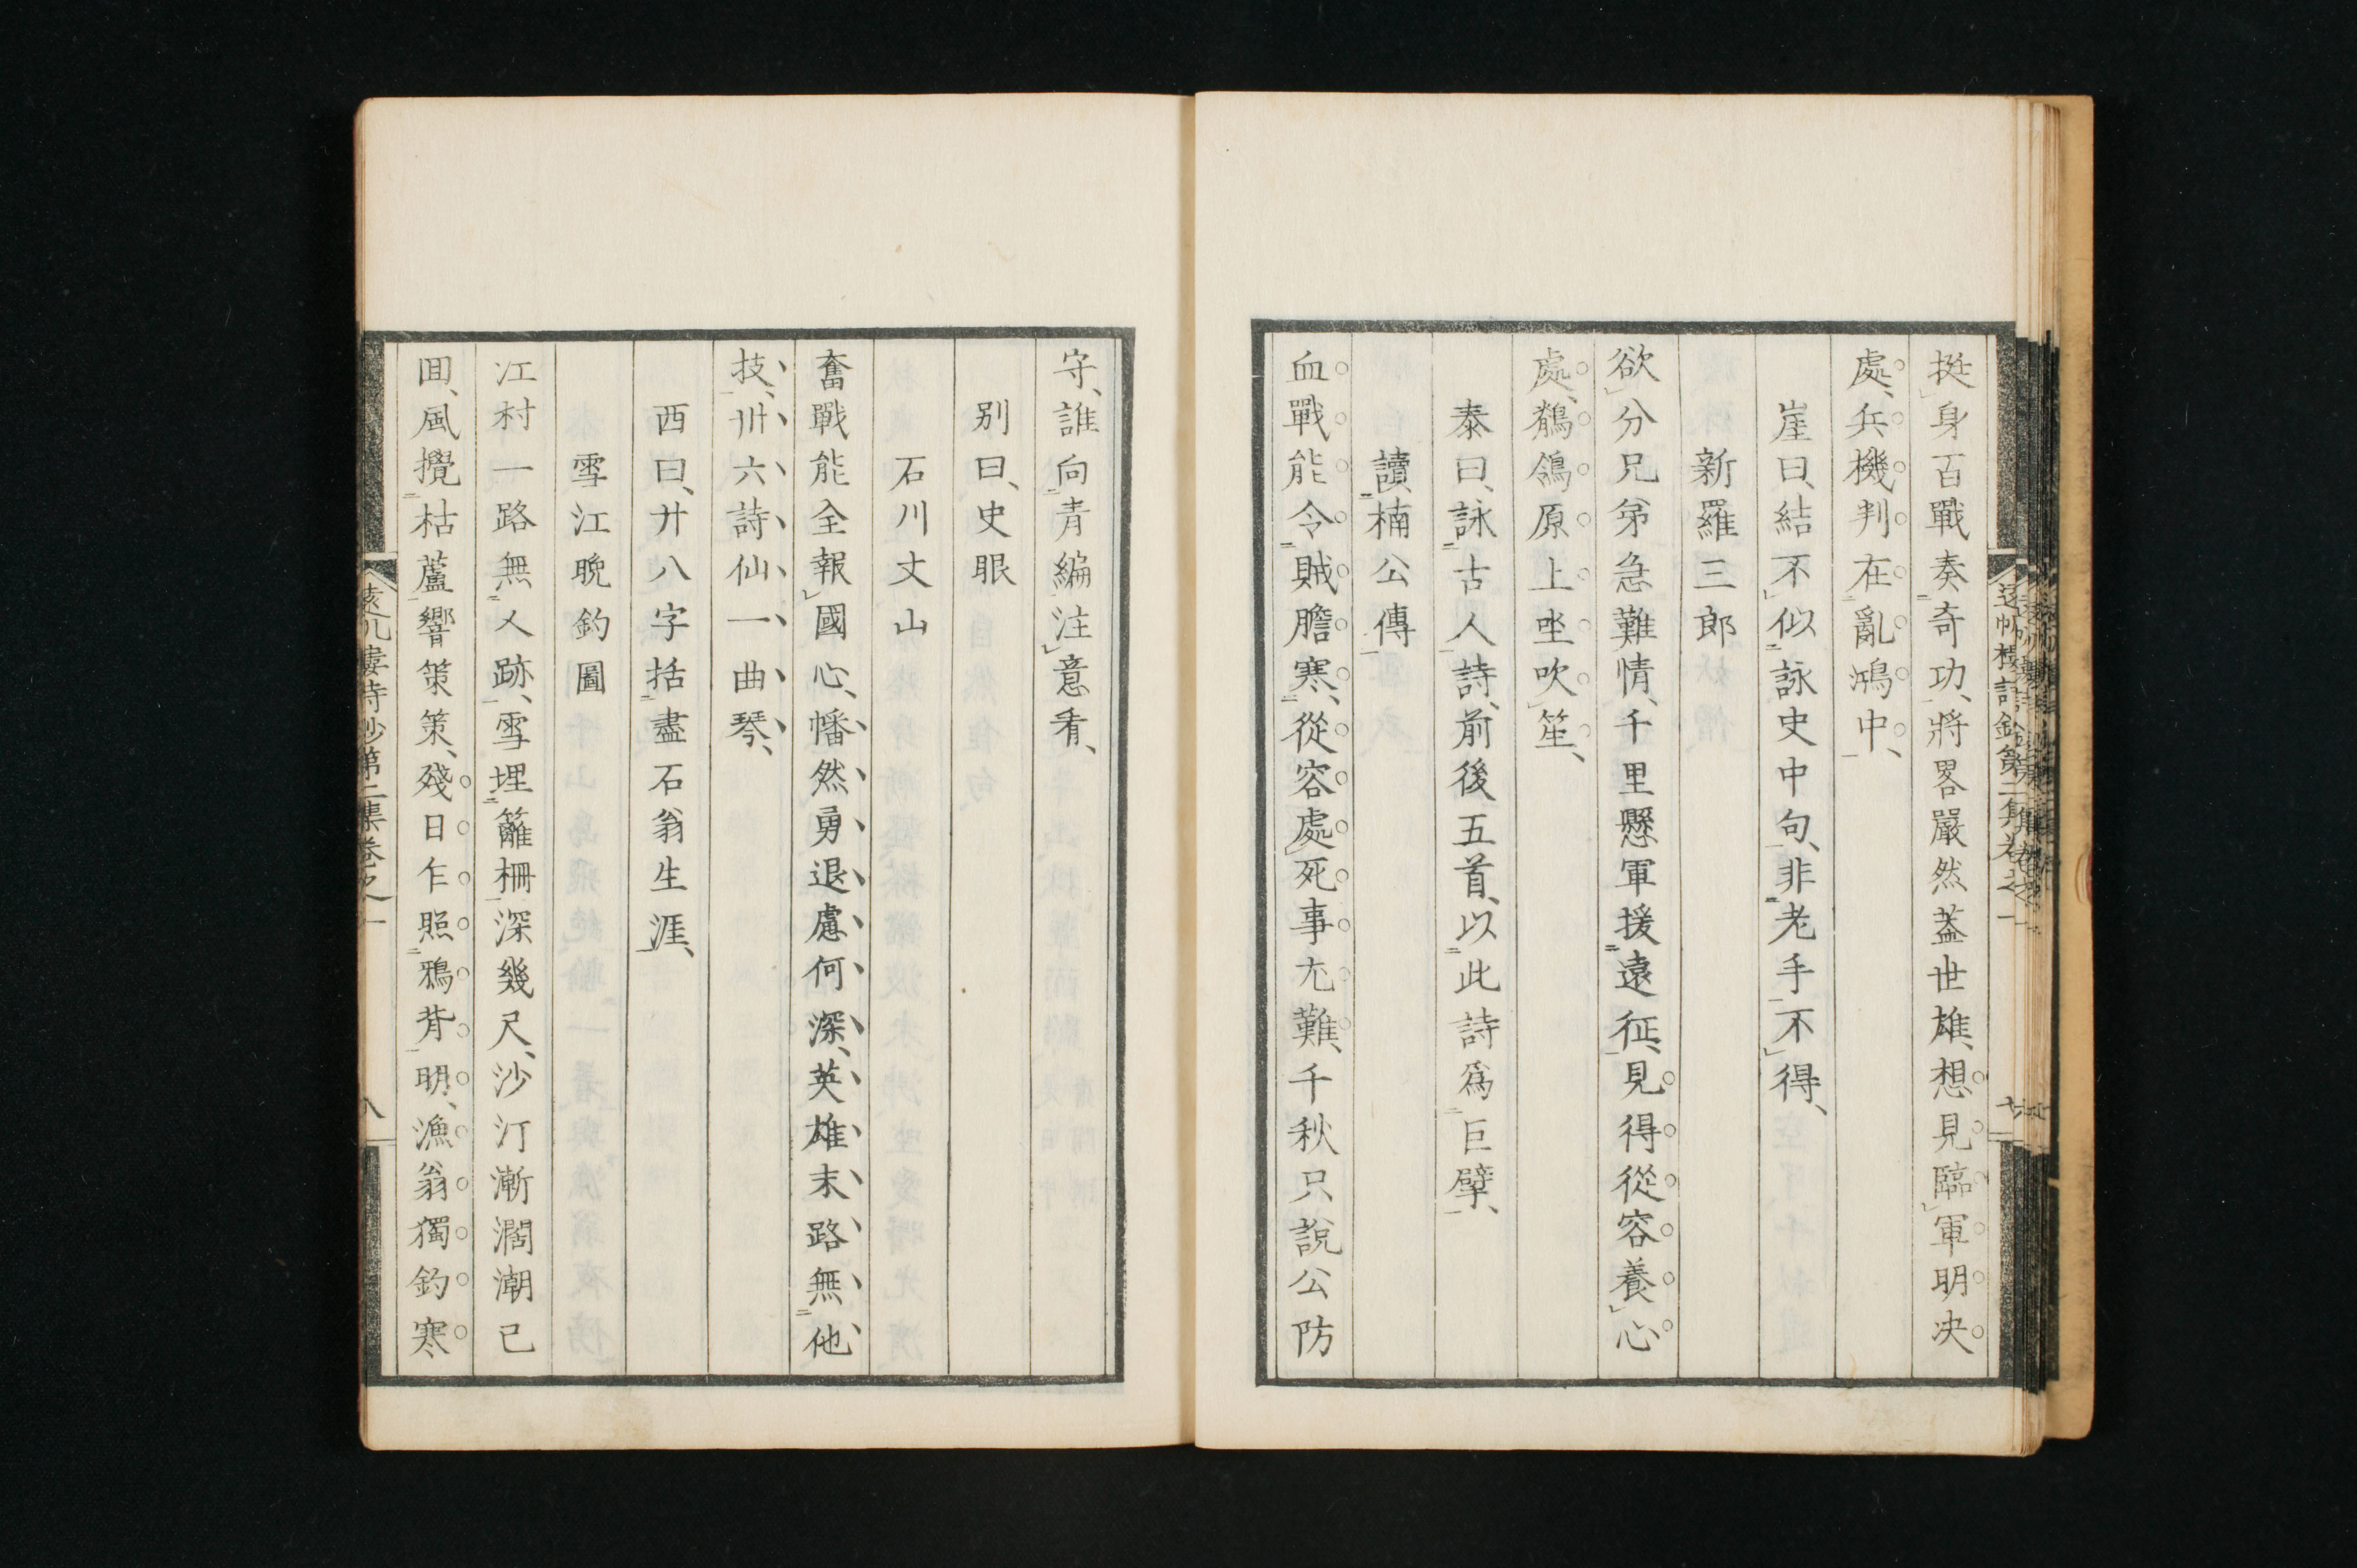 挺身百戰奏奇功、將畧嚴然蓋世雄、想見臨軍明决
處、兵機判在亂鴻中、
崖曰、結不似詠史中句、非老手不得、
新羅三郎
欲分兄弟急難情、千里懸軍援遠征、見得從容養心
處、鶺鴒原上坐吹笙、
泰曰、詠古人詩、前後五首、以此詩爲巨擘、
讀楠公傳
血戰能令賊膽寒、從容處死事尢難、千秋只說公防
守、誰向青編注意看、
別曰、史眼
石川丈山
奮戰能全報國心、幡然勇退慮何深、英雄末路無他
技、卅六詩仙一曲琴、
西曰、廿八字括盡石翁生涯、
雪江晚釣圖
江村一路無人跡、雪埋籬柵深幾尺、沙汀漸濶潮已
囬、風攪枯蘆響策策、殘日乍照鴉背明、漁翁獨釣寒
詩鈔第二集卷之一
八